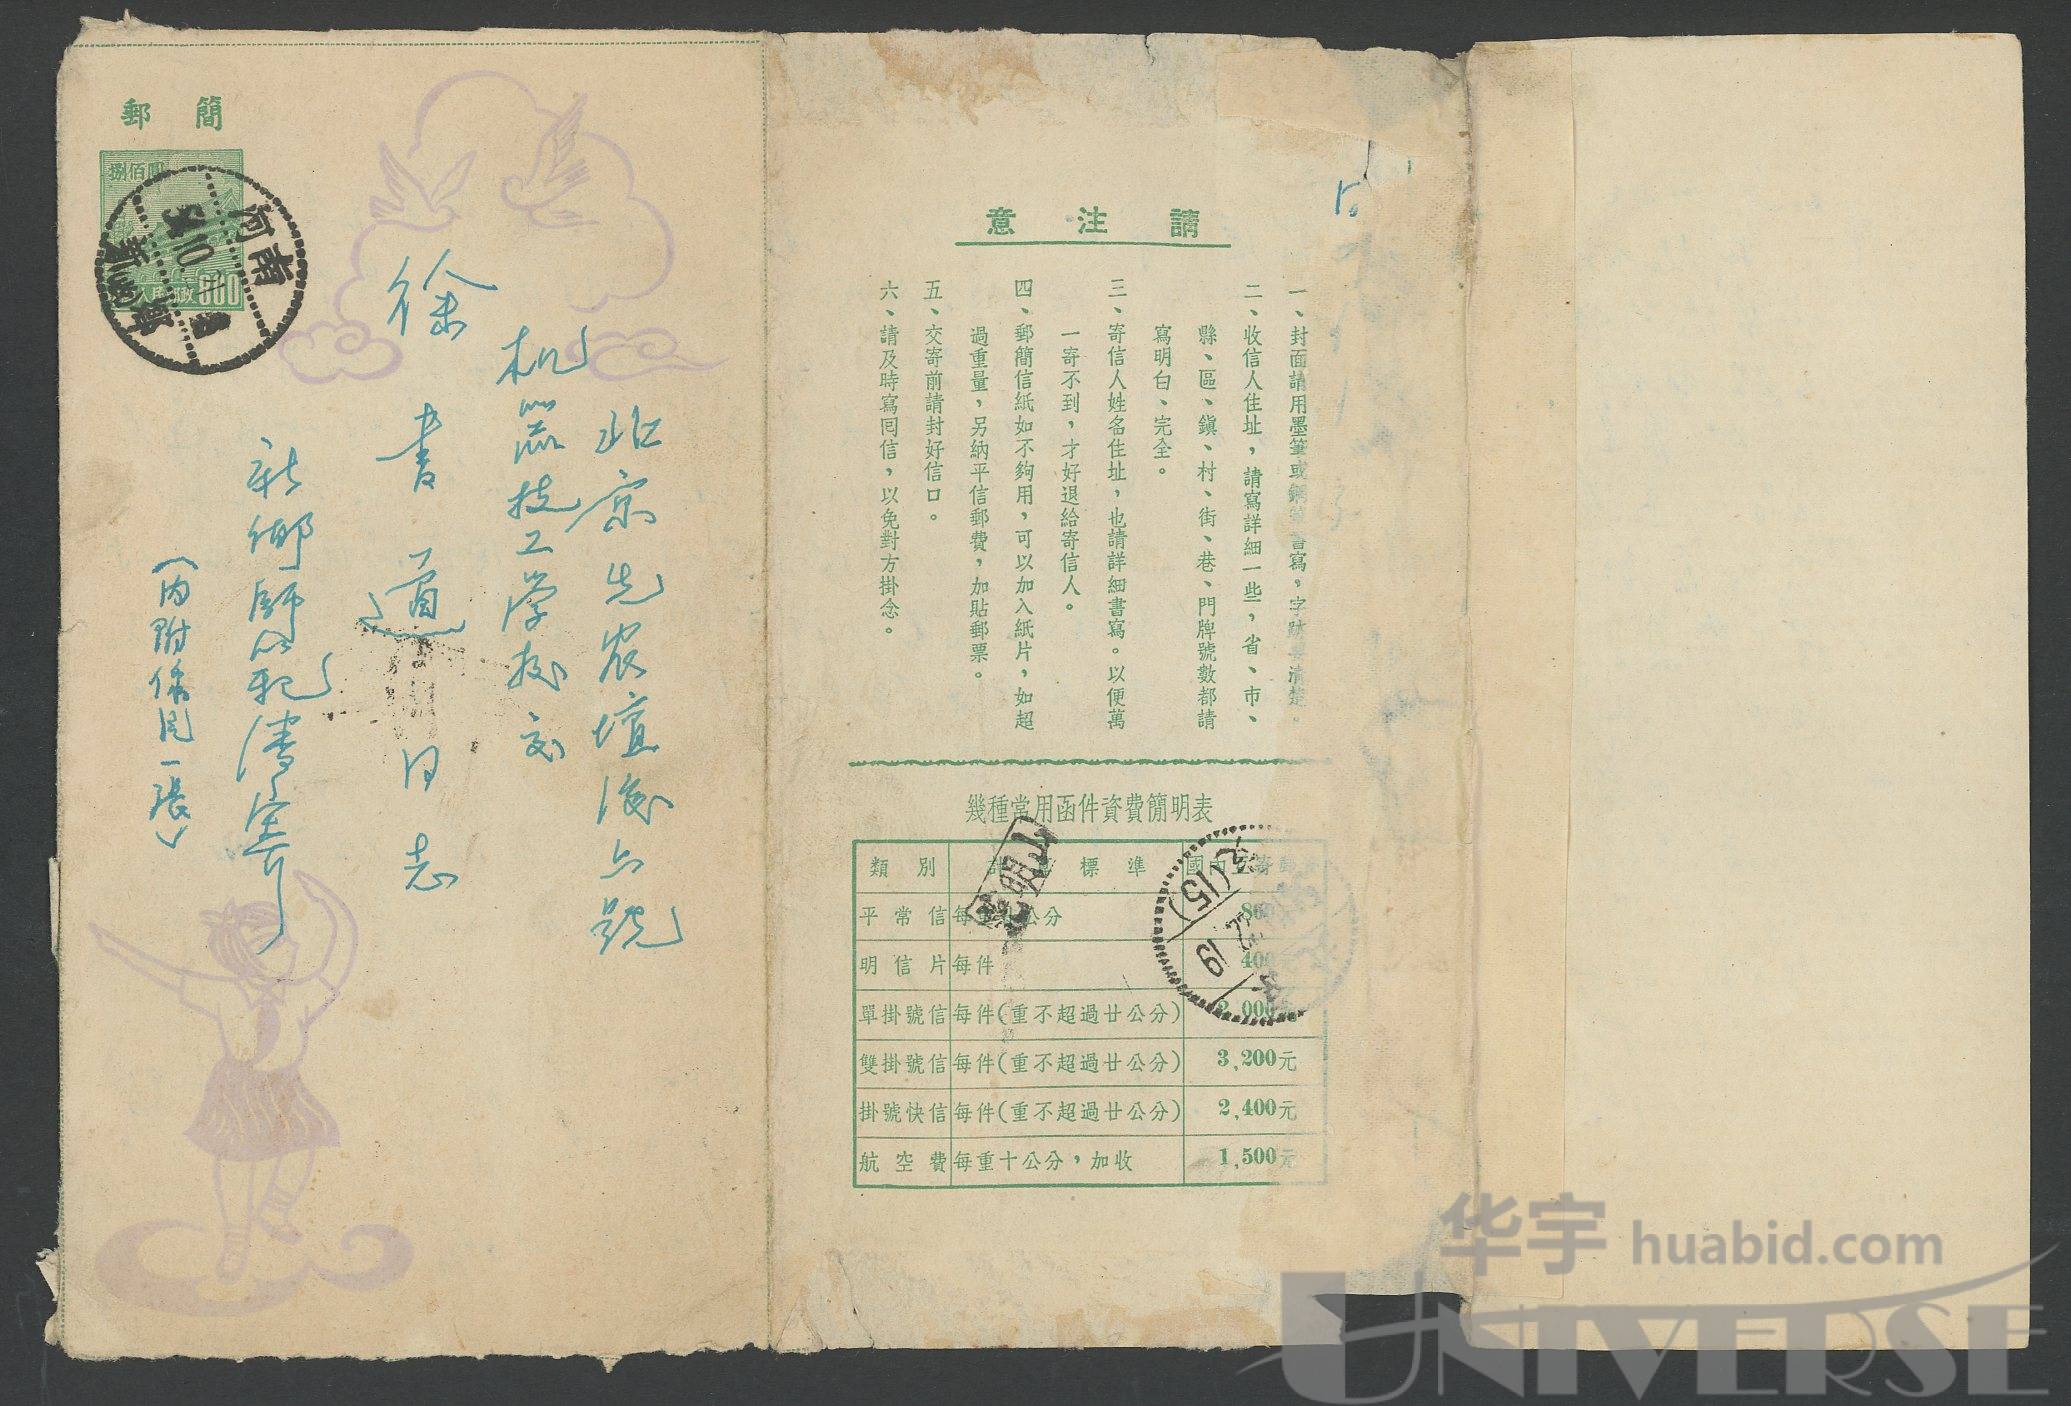 郵簡
捌佰圓
人民郵政 800
河南
54.10.
新鄉
北京先农壇後六號
机器技工学校交
徐書道同志
新鄉師範清寄
(内附像片一張)
請注意
一、封面請用墨筆或鋼筆書寫，字跡要清楚。
二、收信人住址，請寫詳細一些，省、市、
縣、區、鎭、村、街、巷、門牌號數都請
寫明白、完全。
三、寄信人姓名住址，也請詳細書寫。以便萬
一寄不到，才好退給寄信人。
四、郵簡信紙如不夠用，可以加入紙片，如超
過重量，另納平信郵費，加貼郵票。
五、交寄前請封好信口。
六、請及時寫囘信，以免對方掛念。
幾種常用函件資費簡明表
類別 計 標準 國內互寄
平常信 每重 公分 800
明信片 每件 400
單掛號信 每件(重不超過廿公分) 2,000
雙掛號信 每件(重不超過廿公分) 3,200元
掛號快信 每件(重不超過廿公分) 2,400元
航空費 每重十公分，加收 1,500元
(15)
19
华宇 huabid.com
UNIVERSE